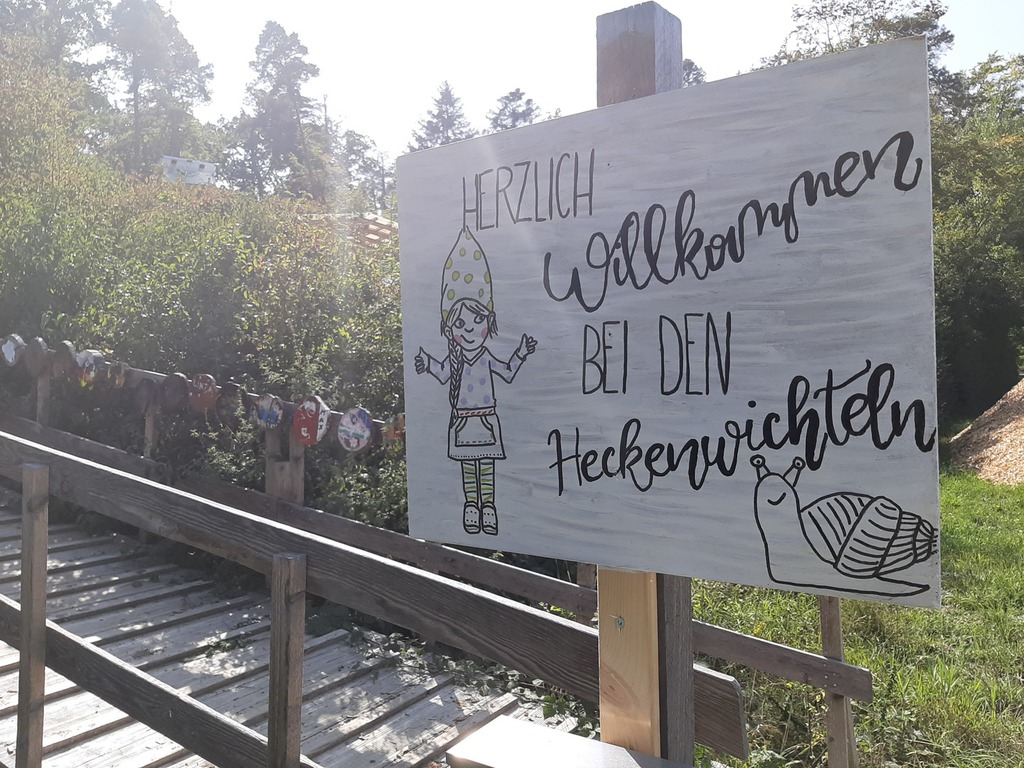 HERZLICH
Willkommen
BEI DEN
Heckenwichteln